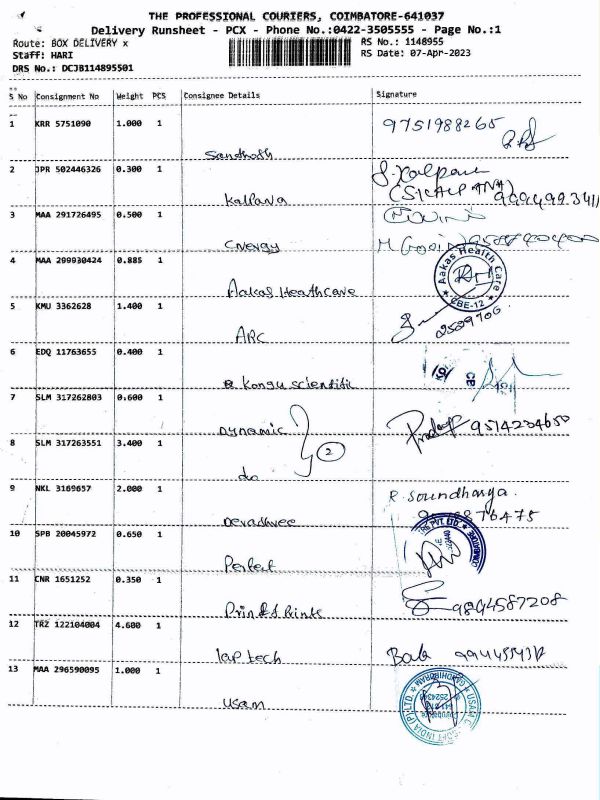 THE PROFESSIONAL COURIERS, COIMBATORE-641037
Delivery Runsheet - PCX - Phone No.:0422-3505555 - Page No.:1
Route: BOX DELIVERY x
RS No.: 1148955
Staff: HARI
RS Date: 07-Apr-2023
DRS No.: DCJB114895501
S No Consignment No Weight PCS Consignee Details Signature
1 KRR 5751090 1.000 1 9751988265
Sandhosh
2 JPR 502446326 0.300 1 S.Kalpana
(S.KALPANA)
Kalpana
3 MAA 291726495 0.500 1
Cnergy
4 MAA 299930424 0.885 1 Aakas Health Care
CBE-12
Aakas Heathcare
5 KMU 3362628 1.400 1
ARC
6 EDQ 11763655 0.400 1
Kongu scientific
7 SLM 317262803 0.600 1 Pradeep 9514234650
Dynamic
2
8 SLM 317263551 3.400 1
do
9 NKL 3169657 2.000 1 R.Soundharya
Devadhvee
10 SPB 20045972 0.650 1
Perfect
11 CNR 1651252 0.350 1 9894587208
Print & Prints
12 TRZ 122104004 4.600 1 Bala
lap tech
13 MAA 296590095 1.000 1
Usam